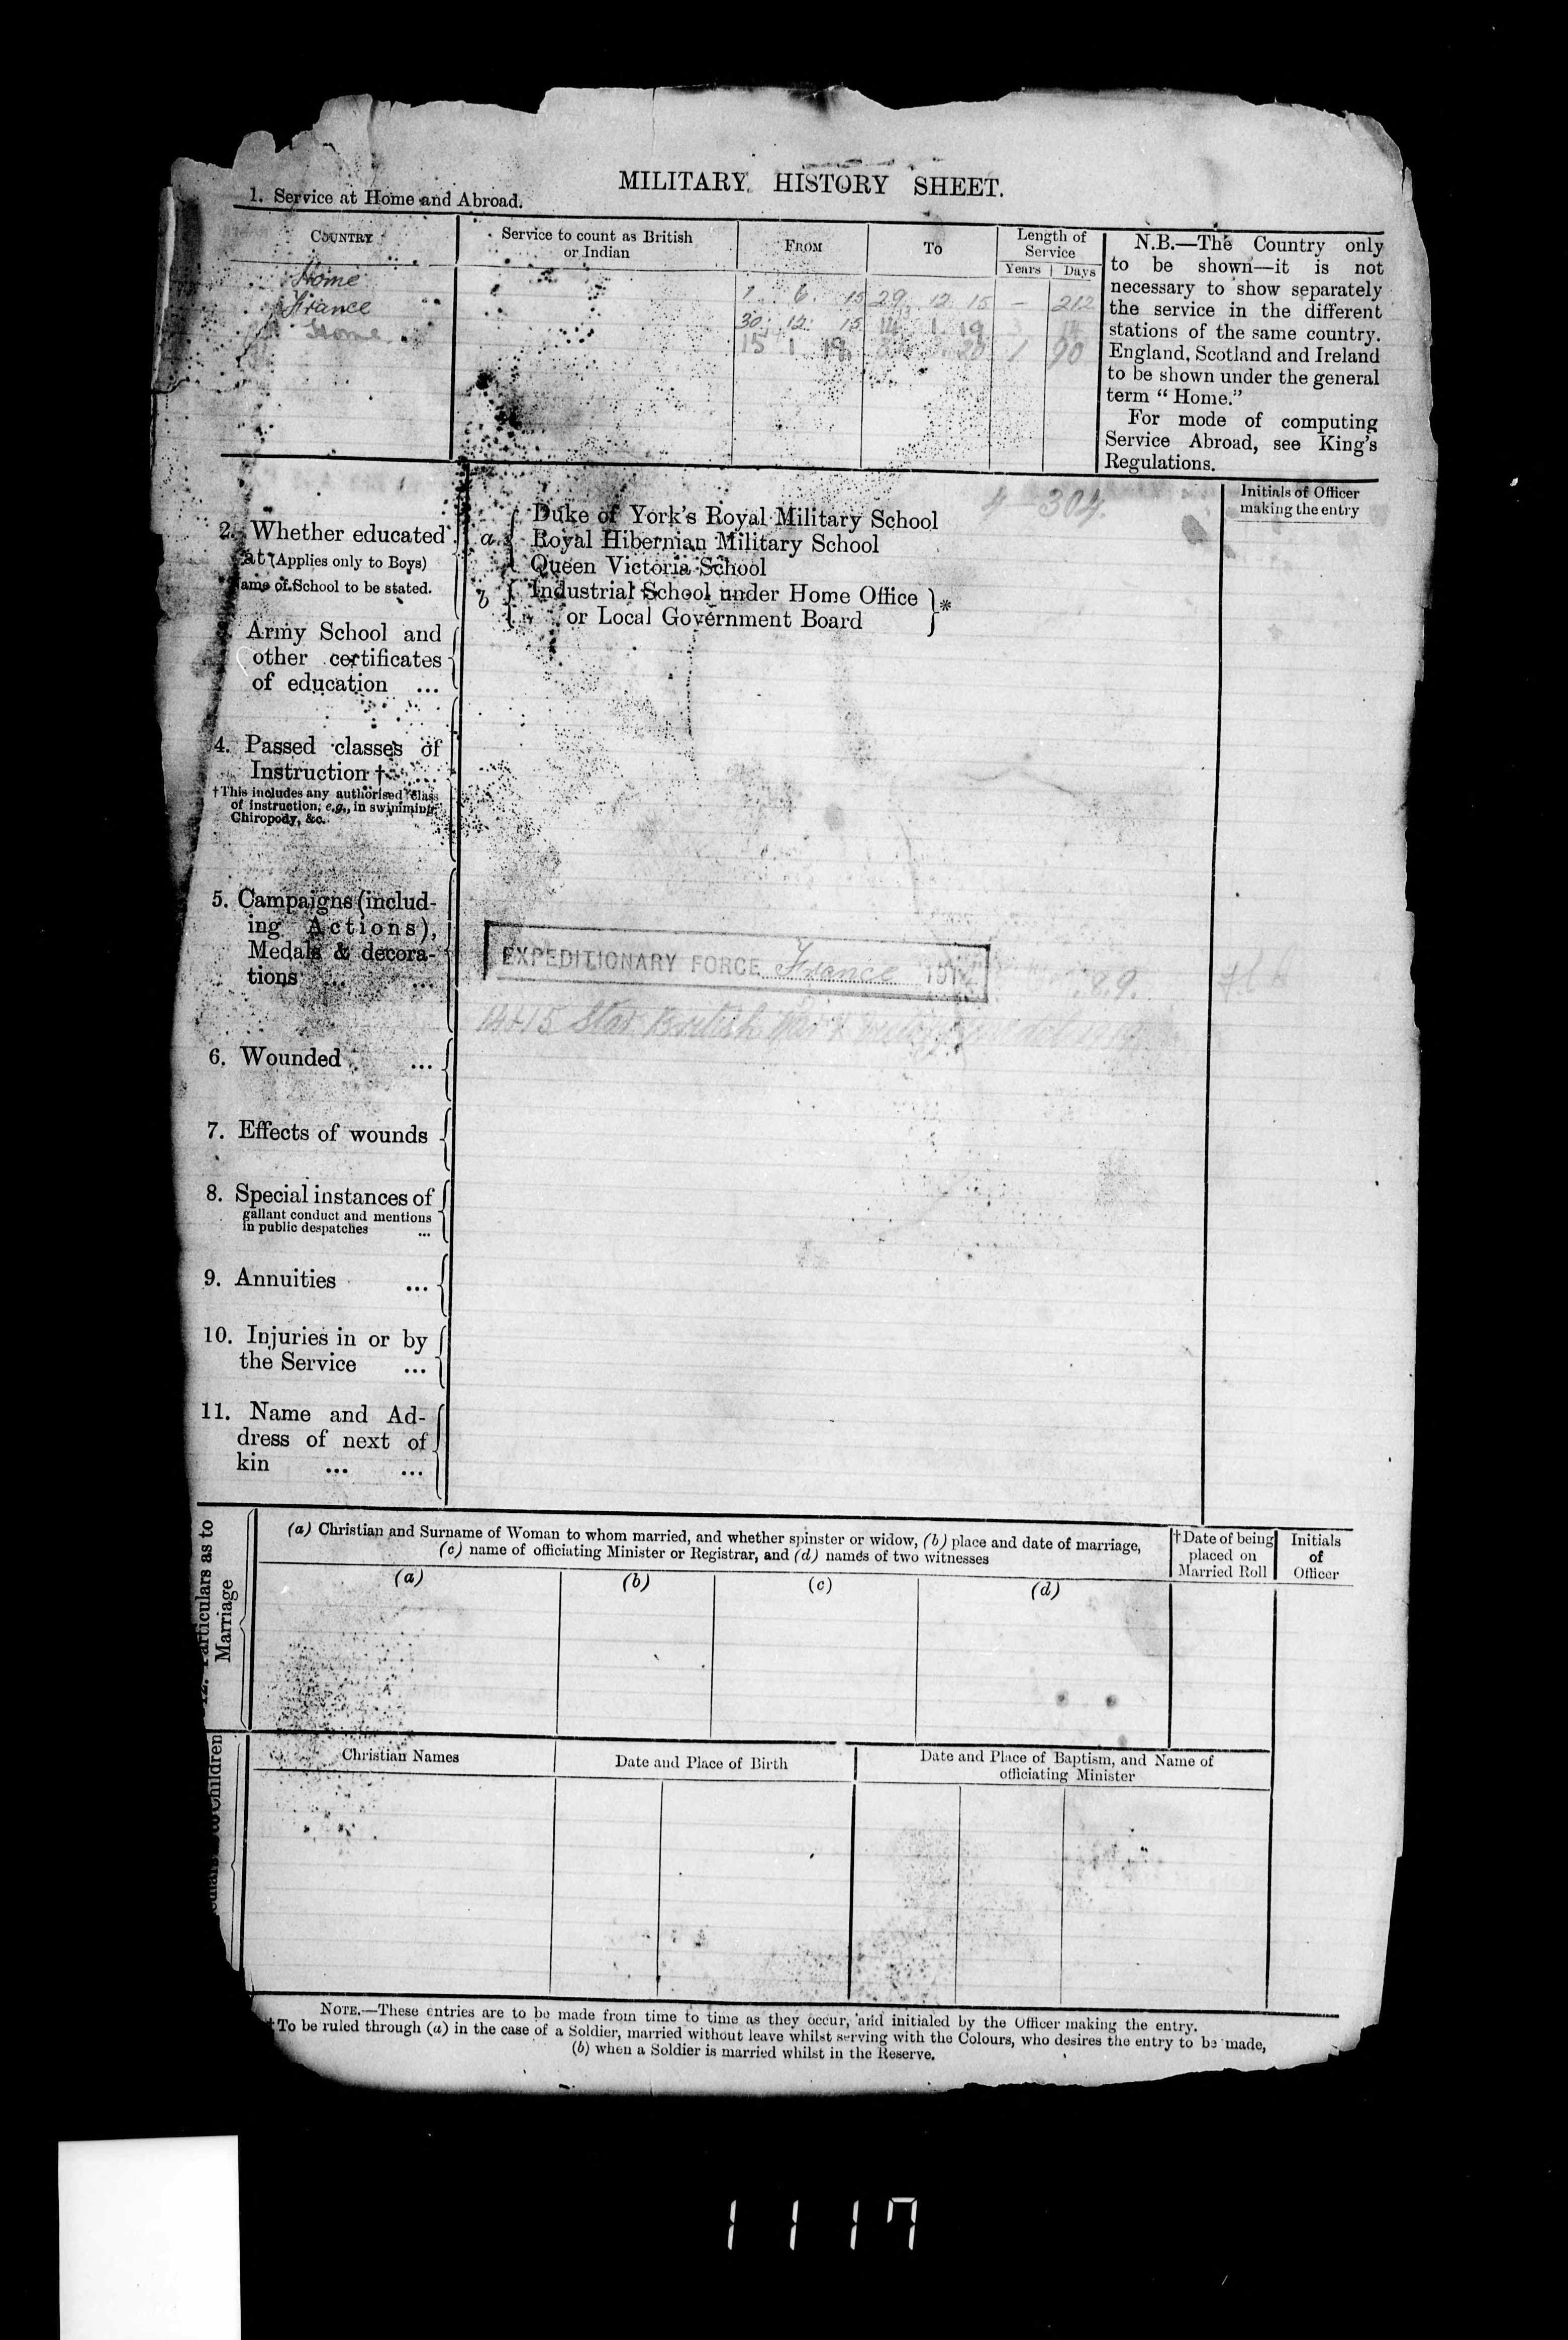 MILITARY HISTORY SHEET.
1. Service at Home and Abroad.
COUNTRY
Service to count as British
or Indian
FROM
To
Length of
Service
Years
Days
Home
1 6. 15 29 12 15 – 212
France
30 12 15 14 1 19 3
Home
15 1 19 20 1 90
N.B.—The Country only
to be shown—it is not
necessary to show separately
the service in the different
stations of the same country.
England, Scotland and Ireland
to be shown under the general
term “ Home.”
For mode of computing
Service Abroad, see King's
Regulations.
4 304
Initials of Officer
making the entry
2. Whether educated
at (Applies only to Boys)
ame of School to be stated.
a
Duke of York's Royal Military School
Royal Hibernian Military School
Queen Victoria School
b
Industrial School under Home Office
or Local Government Board
*
Army School and
other certificates
of education ...
4. Passed classes of
Instruction † ...
† This includes any authorised class
of instruction, e.g., in swimming,
Chiropody, &c.
5. Campaigns (includ-
ing Actions),
Medals & decora-
tions ... ...
EXPEDITIONARY FORCE France 191
14 & 15 Star British War &
6. Wounded ...
7. Effects of wounds
8. Special instances of
gallant conduct and mentions
in public despatches ...
9. Annuities ...
10. Injuries in or by
the Service ...
11. Name and Ad-
dress of next of
kin ... ...
12. Particulars as to
Marriage
(a) Christian and Surname of Woman to whom married, and whether spinster or widow, (b) place and date of marriage,
(c) name of officiating Minister or Registrar, and (d) names of two witnesses
† Date of being
placed on
Married Roll
Initials
of
Officer
(a)
(b)
(c)
(d)
Children
Christian Names
Date and Place of Birth
Date and Place of Baptism, and Name of
officiating Minister
NOTE.—These entries are to be made from time to time as they occur, and initialed by the Officer making the entry.
†To be ruled through (a) in the case of a Soldier, married without leave whilst serving with the Colours, who desires the entry to be made,
(b) when a Soldier is married whilst in the Reserve.
1117